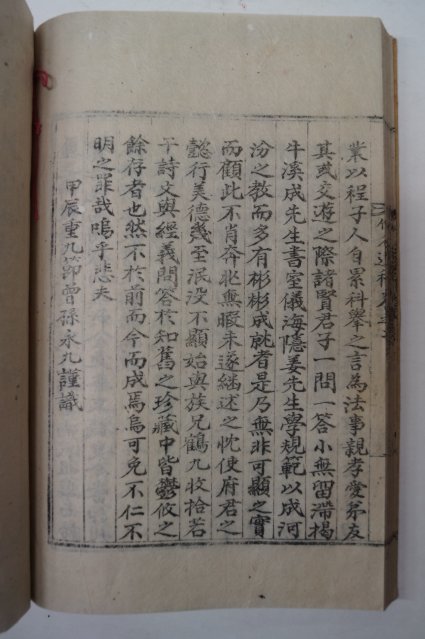 業以程子人自累科擧之言為法事親孝愛弟友
其或交遊之際諸賢君子一問一答小無留滯揭
牛溪成先生書室儀海隱姜先生學規範以成河
汾之教而多有彬彬成就者是乃無非可顯之實
而顧此不肖奔北無暇未遂繼述之忱使府君之
懿行美德幾至泯没不顯始與族兄鶴九收拾若
干詩文與經義問答於知舊之珍藏中皆鬱攸之
餘存者也然不於前而今而成焉烏可免不仁不
明之罪哉嗚乎悲夫
甲辰重九節曾孫永九謹識